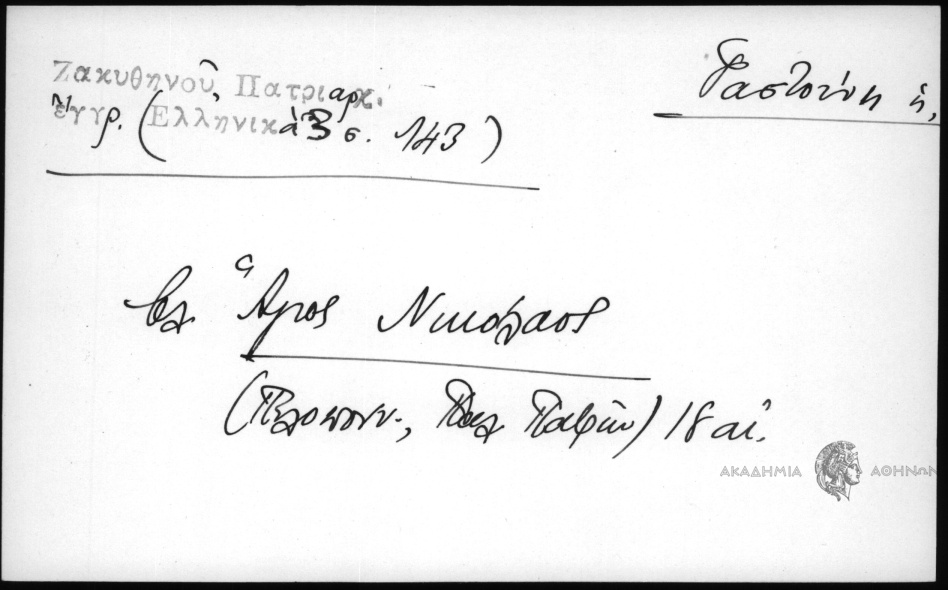 Ζακυθηνοῦ, Πατριαρχ.
ἔγγρ. (Ἑλληνικὰ 3 σ. 143)
Γαστούνη ἡ,
βλ Ἅγιος Νικόλαος
(Πελοπονν., Παλ Πατρῶν) 18 αἰ.
ΑΚΑΔΗΜΙΑ ΑΘΗΝΩΝ